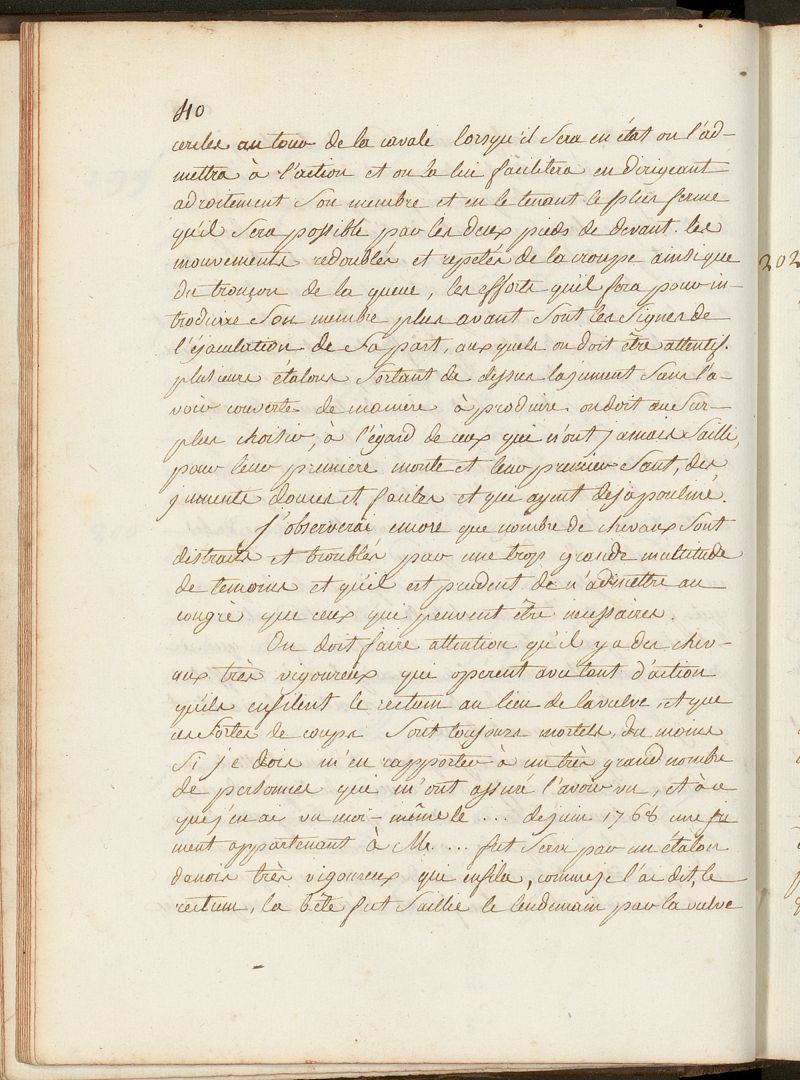 40
cercles au tour de la cavale lorsqu'il sera en état on l'ad-
mettra à l'action et on la lui facilitera en dirigeant
adroitement son membre et en le tenant le plus ferme
qu'il sera possible par les deux pieds de devant. les
mouvements redoublés et repetés de la croupe ainsi que
du tronçon de la queue, les efforts qu'il fera pour in-
troduire son membre plus avant sont les signes de
l'éjaculation de sa part, auxquels on doit être attentif.
plusieurs étalons sortant de dessus la jument sans l'a-
voir couverte de maniere à produire. on doit au sur-
plus choisir, à l'égard de ceux qui n'ont jamais sailli,
pour leur premiere monte et leur premier saut, des
juments douces et faciles et qui ayent deja pouliné.
J'observerai encore que nombre de chevaux sont
distraits et troublés par une trop grande multitude
de temoins et qu'il est prudent de n'admettre au
congrè que ceux qui peuvent être necessaires.
On doit faire attention qu'il y a des chev-
aux très vigoureux qui operent avec tant d'action
qu'ils enfilent le rectum au lieu de la vulve, et que
ces sortes de coups sont toujours mortels, du moins
si je dois m'en rapporter à un très grand nombre
de personnes qui m'ont assuré l'avoir vu, et à ce
que j'en ai vu moi-même le ... de juin 1768 une ju
ment appartenant à Mr. ... fut servi par un étalon
danois très vigoureux que enfila, comme je l'ai dit, le
rectum, la bête fut saillie le lendemain par la vulve
202